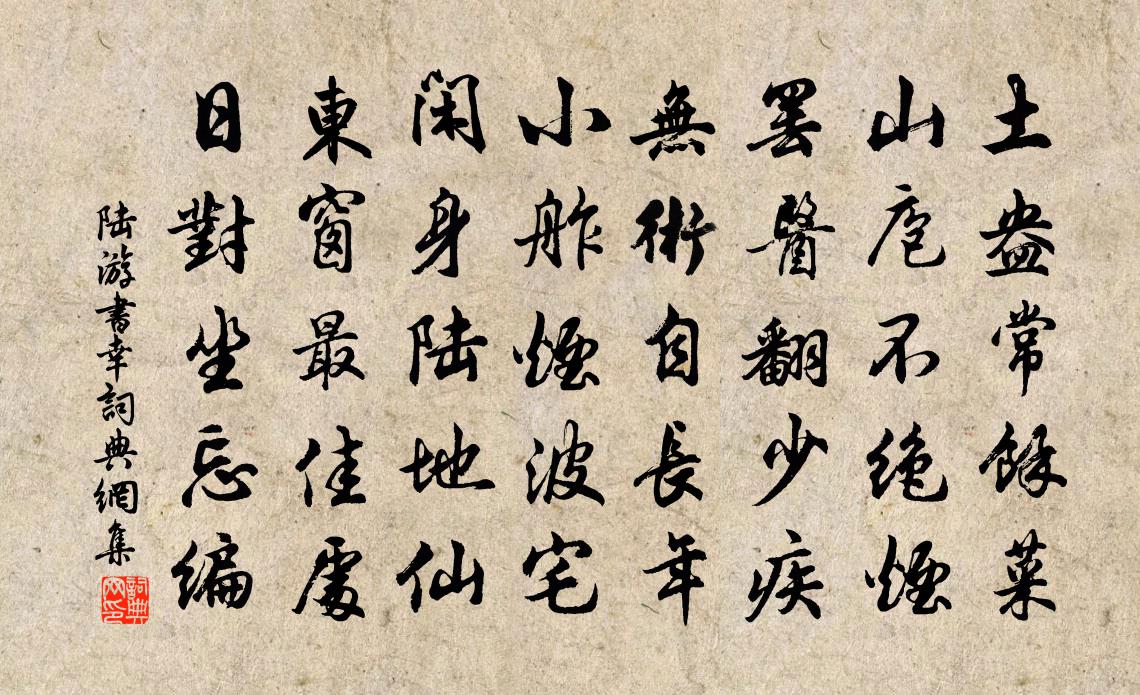 土盎常餘菜
山庖不絶煙
罢醫翻少疾
無術自長年
小舴煙波宅
閑身陸地仙
東窗最佳處
日對坐忘編
陆游書幸詞典網集
詞典
网印